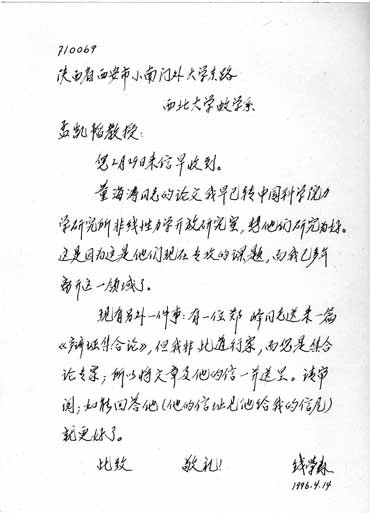 710069
陕西省西安市小南门外大学东路
西北大学数学系
孟凯韬教授:
您2月29日来信早收到。
董海涛同志的论文我早已转中国科学院力
学研究所非线性力学开放研究室,想他们研究为好。
这是因为这是他们现在专攻的课题,而我已多年
离开这一领域了。
现有另外一件事:有一位郑 同志送来一篇
《辩证集合论》,但我非此道行家,而您是集合
论专家;所以将文章及他的信一并送呈。请审
阅;如能回答他(他的信址见他给我的信尾)
就更好了。
此致 敬礼!
钱学森
1996.4.14